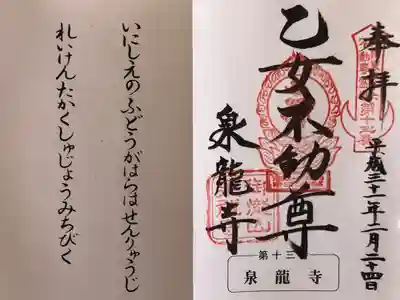 奉拝
平成三十一年二月二十四日
乙女不動尊
泉龍寺
第十三
泉龍寺
いにしえのふどうがはらはせんりゅうじ
れいけんたかくしゅじょうみちびく